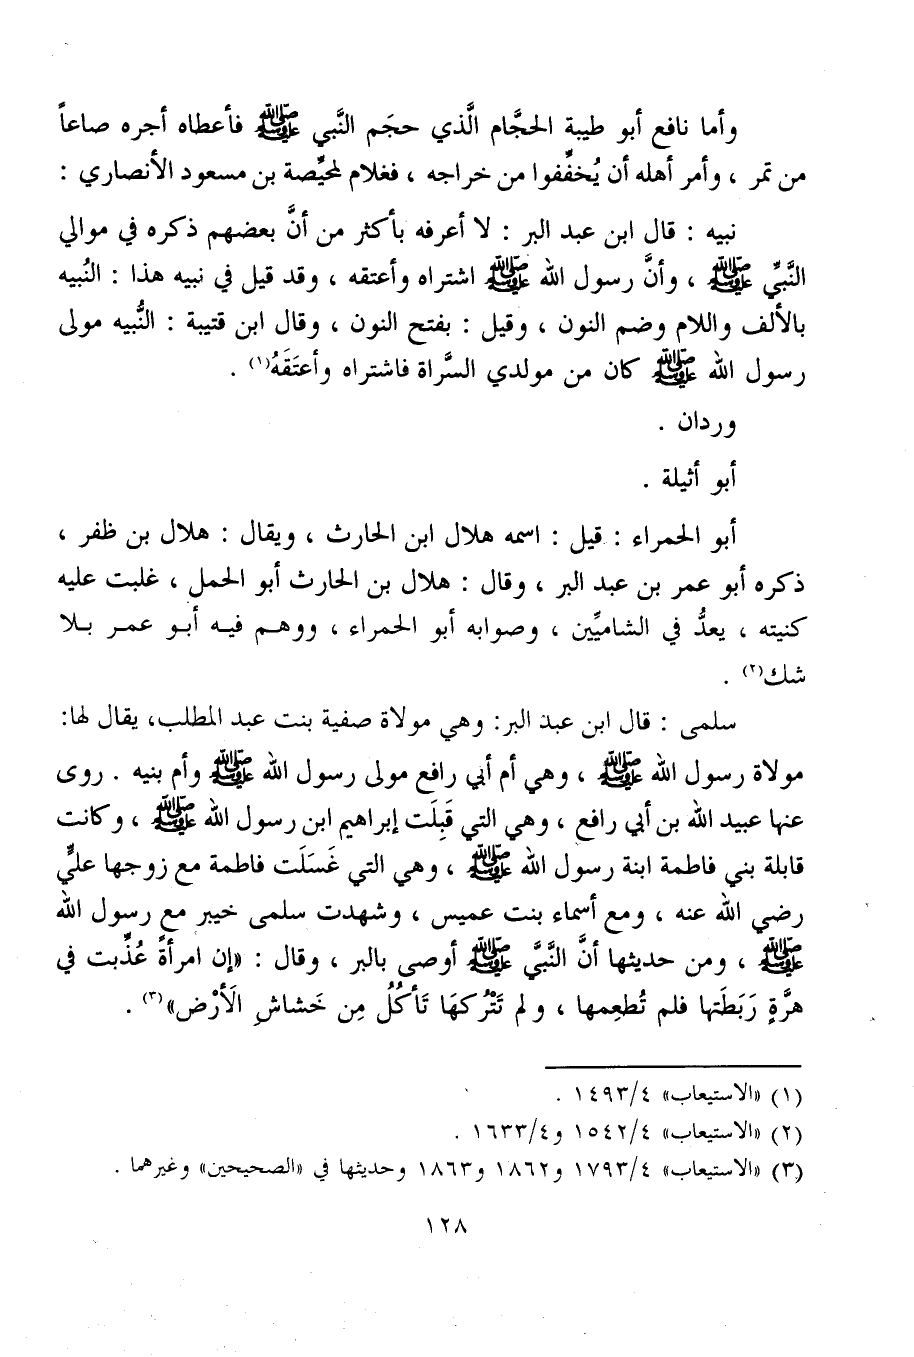 وأما نافع أبو طيبة الحجَّام الَّذي حجَم النَّبي ﷺ فأعطاه أجره صاعاً
من تمر ، وأمر أهله أن يُخفِّفوا من خراجه ، فغلام لمحيِّصة بن مسعود الأنصاري :
نبيه : قال ابن عبد البر : لا أعرفه بأكثر من أنَّ بعضهم ذكره في موالي
النَّبيِّ ﷺ ، وأنَّ رسول الله ﷺ اشتراه وأعتقه ، وقد قيل في نبيه هذا : النُبيه
بالألف واللام وضم النون ، وقيل : بفتح النون ، وقال ابن قتيبة : النُّبيه مولى
رسول الله ﷺ كان من مولدي السَّراة فاشتراه وأعتَقَهُ(١) .
وردان .
أبو أثيلة .
أبو الحمراء : قيل : اسمه هلال ابن الحارث ، ويقال : هلال بن ظفر ،
ذكره أبو عمر بن عبد البر ، وقال : هلال بن الحارث أبو الحمل ، غلبت عليه
كنيته ، يعدُّ في الشاميِّين ، وصوابه أبو الحمراء ، ووهم فيه أبو عمر بلا
شك(٢) .
سلمى : قال ابن عبد البر: وهي مولاة صفية بنت عبد المطلب، يقال لها:
مولاة رسول الله ﷺ ، وهي أم أبي رافع مولى رسول الله ﷺ وأم بنيه . روى
عنها عبيد الله بن أبي رافع ، وهي التي قَبِلَت إبراهيم ابن رسول الله ﷺ ، وكانت
قابلة بني فاطمة ابنة رسول الله ﷺ ، وهي التي غَسَلَت فاطمة مع زوجها عليٍّ
رضي الله عنه ، ومع أسماء بنت عميس ، وشهدت سلمى خيبر مع رسول الله
ﷺ ، ومن حديثها أنَّ النَّبيَّ ﷺ أوصى بالبر ، وقال : «إن امرأةً عُذِّبت في
هرَّةٍ رَبَطَتها فلم تُطعِمها ، ولم تَتْرُكهَا تَأكُلُ مِن خَشاشِ الَأرْض»(٣) .
(١) «الاستيعاب» ١٤٩٣/٤ .
(٢) «الاستيعاب» ١٥٤٢/٤ و١٦٣٣/٤ .
(٣) «الاستيعاب» ١٧٩٣/٤ و١٨٦٢ و١٨٦٣ وحديثها في «الصحيحين» وغيرهما .
١٢٨